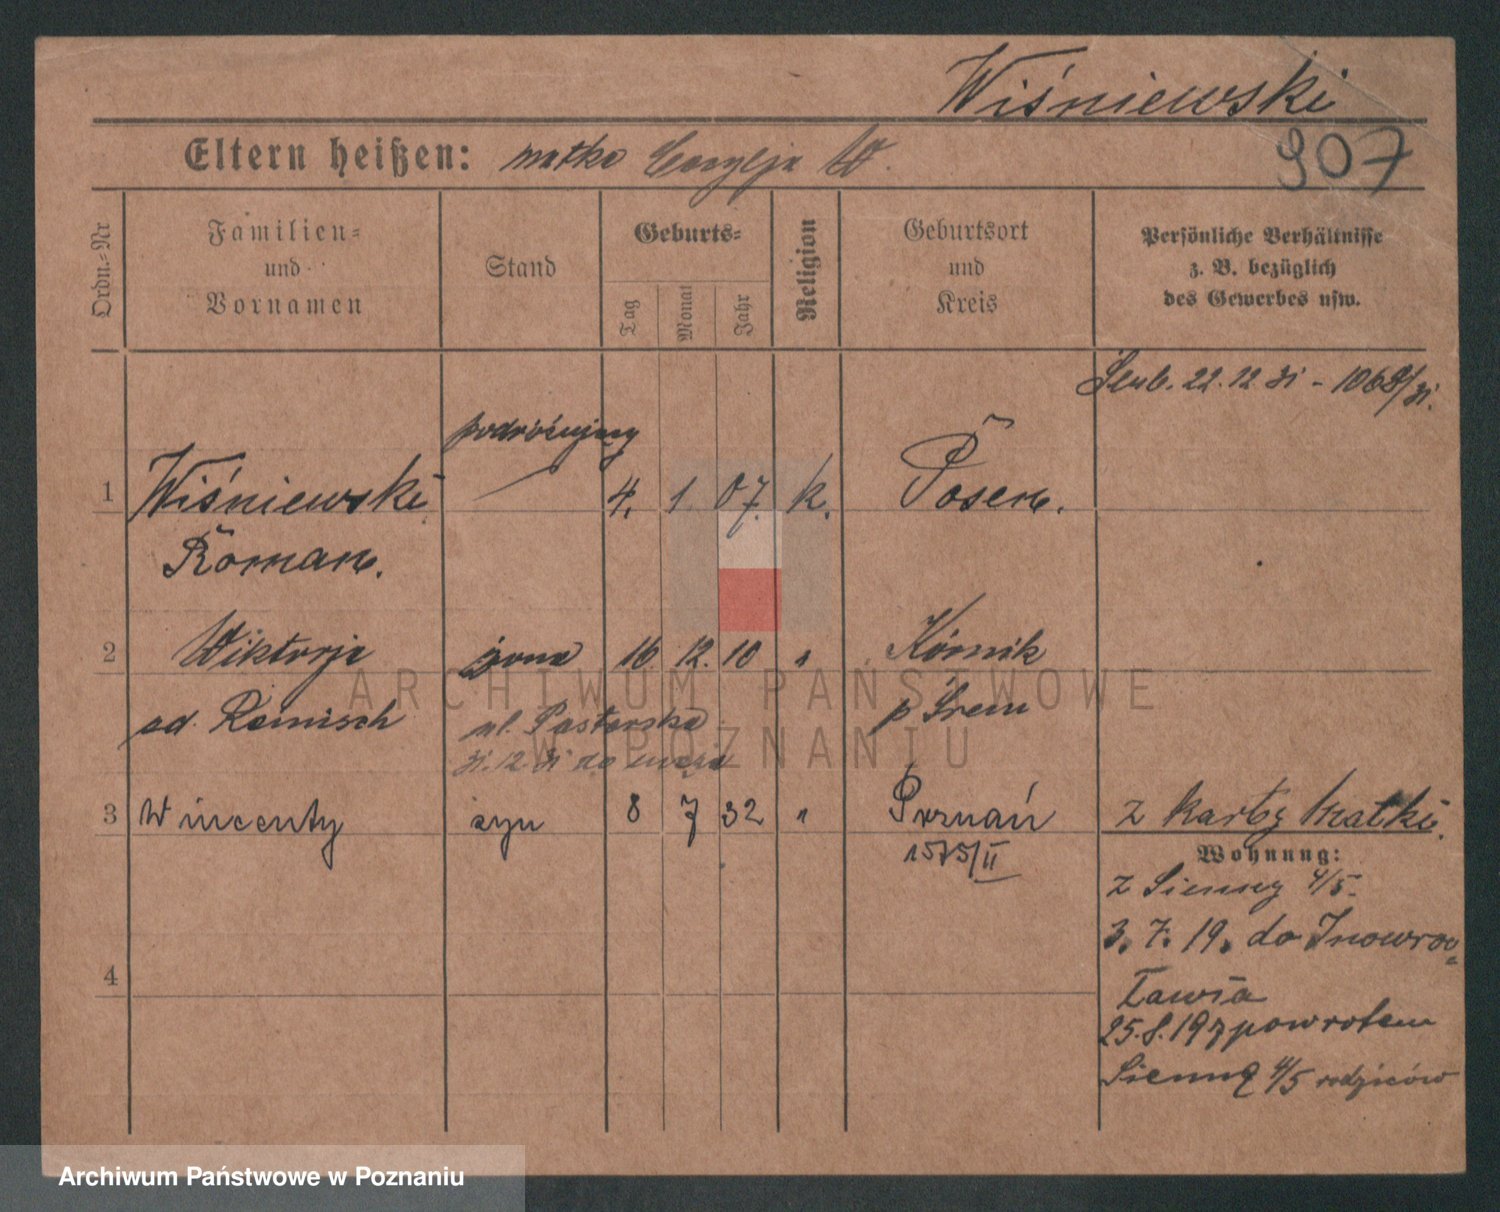 Wiśniewski
907
Eltern heißen: matka W.
Ordn.-Nr
Familien-
und
Vornamen
Stand
Geburts-
Tag
Monat
Jahr
Religion
Geburtsort
und
Kreis
Persönliche Verhältnisse
z. B. bezüglich
des Gewerbes usw.
Ślub. 22.12.31 - 1068/31.
podróżujący
1 Wiśniewski 4. 1. 07. k. Posen.
Roman.
2 Wiktorja żona 16 12. 10 " Kórnik
od. Remisch ul. Pasterska p Śrem
31.12.31 do męża
3 Wincenty syn 8 7 32 " Poznań z karty matki.
1575/II
Wohnung:
z Sienny 4/5.
3. 7. 19. do Inowroc=
ławia
4
25.8.19 z powrotem
Sienna 4/5 rodziców
ARCHIWUM PAŃSTWOWE
W POZNANIU
Archiwum Państwowe w Poznaniu